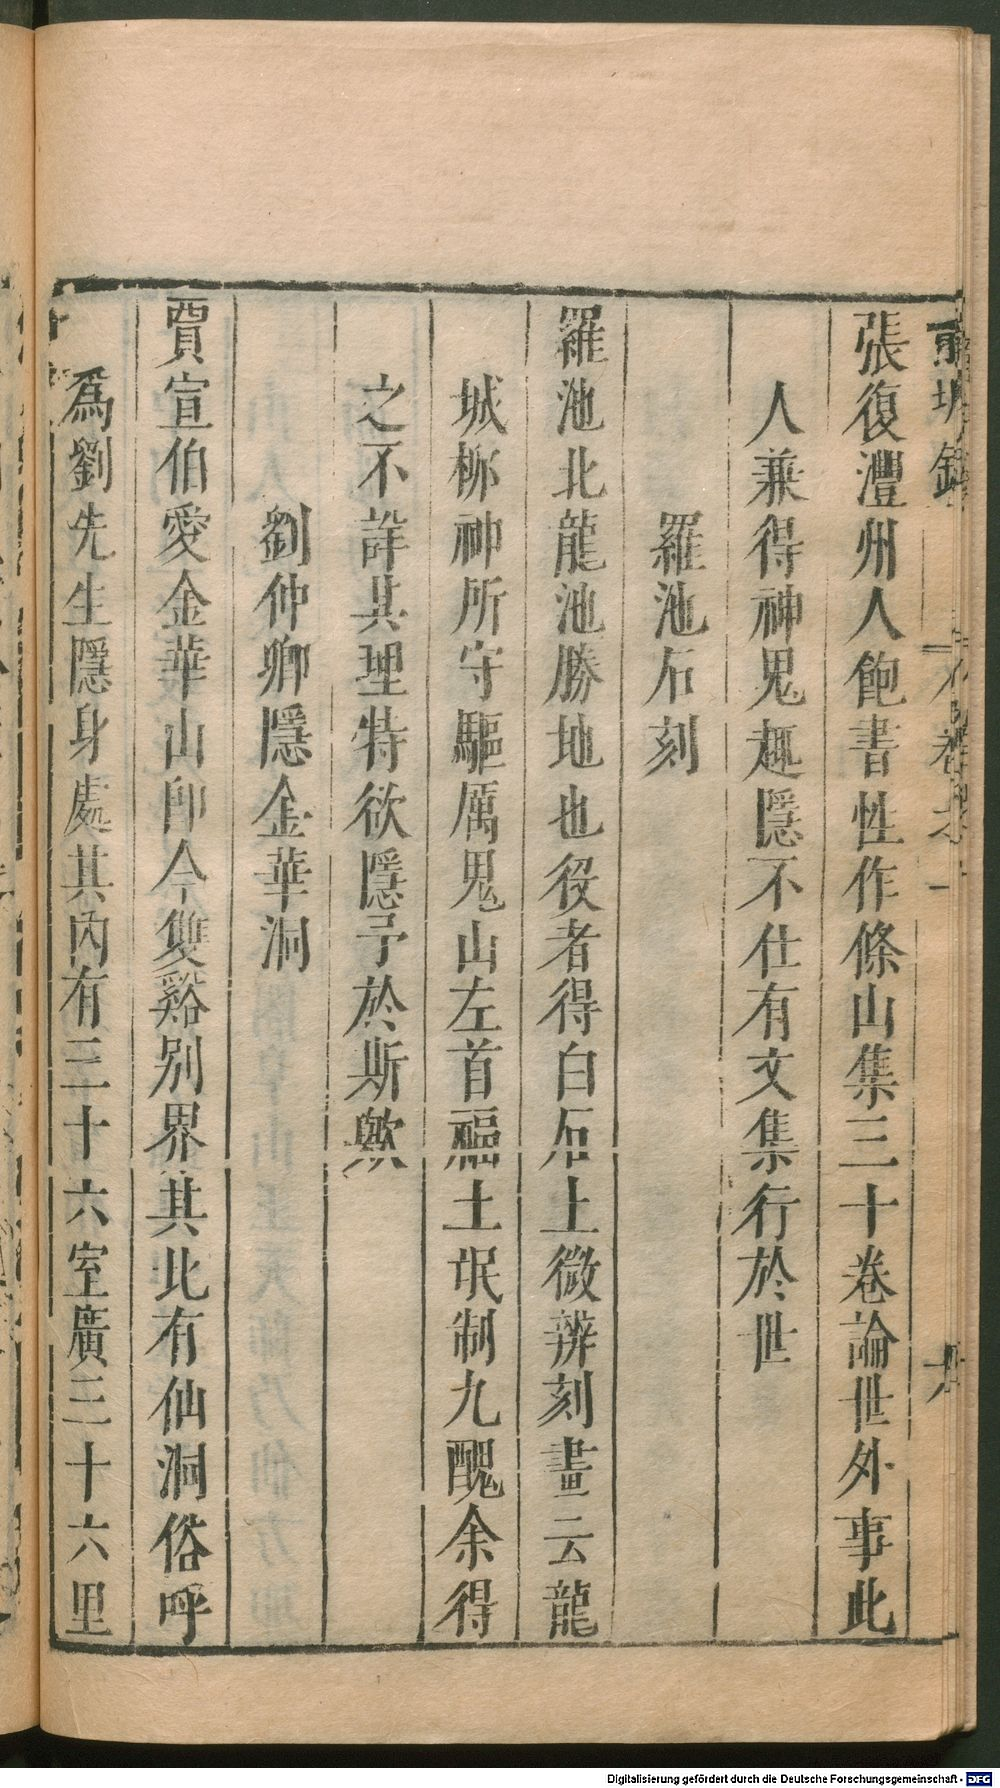 張復澧州人飽書性作條山集三十卷論世外事此
人兼得神鬼趣隱不仕有文集行於世
羅池石刻
羅池北龍池勝地也役者得白石上微辨刻畫云龍
城栁神所守驅厲鬼山左首福土氓制九醜余得
之不詳其理特欲隱予於斯歟
劉仲卿隱金華洞
賈宣伯愛金華山卽今雙谿别界其北有仙洞俗呼
爲劉先生隱身處其內有三十六室廣三十六里
Digitalisierung gefördert durch die Deutsche Forschungsgemeinschaft - DFG